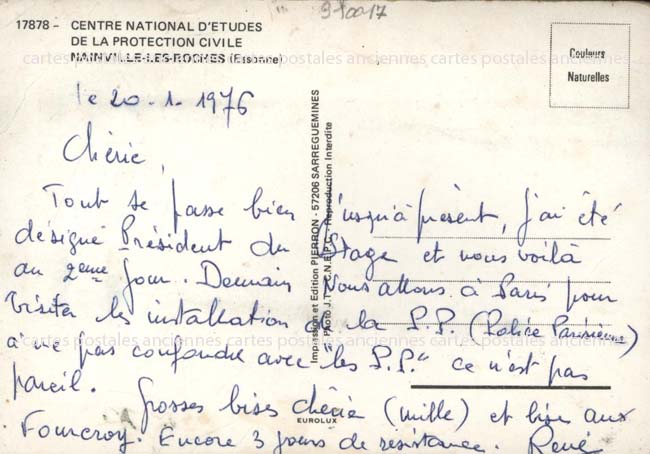 910017
17878 - CENTRE NATIONAL D'ETUDES
DE LA PROTECTION CIVILE
NAINVILLE-LES-ROCHES (Essonne)
Couleurs
Naturelles
cartes postales anciennes cartes postales anciennes cartes postales anciennes
le 20.1.1976
Chérie,
Tout se passe bien jusqu'à présent, j'ai été
désigné Président du Stage et nous voilà
au 2eme jour. Demain nous allons à Paris pour
visiter les installation de la P.P. (Police Parisienne)
à ne pas confondre avec "les P.P." ce n'est pas
pareil. Grosses bises chérie (mille) et bise aux
Fourcroy. Encore 3 jours de résistance. René
Impression et Edition PIERRON - 57206 SARREGUEMINES
Photo J.T. - C.N.E.P.C. - Reproduction Interdite
EUROLUX
cartes postales anciennes cartes postales anciennes cartes postales anciennes